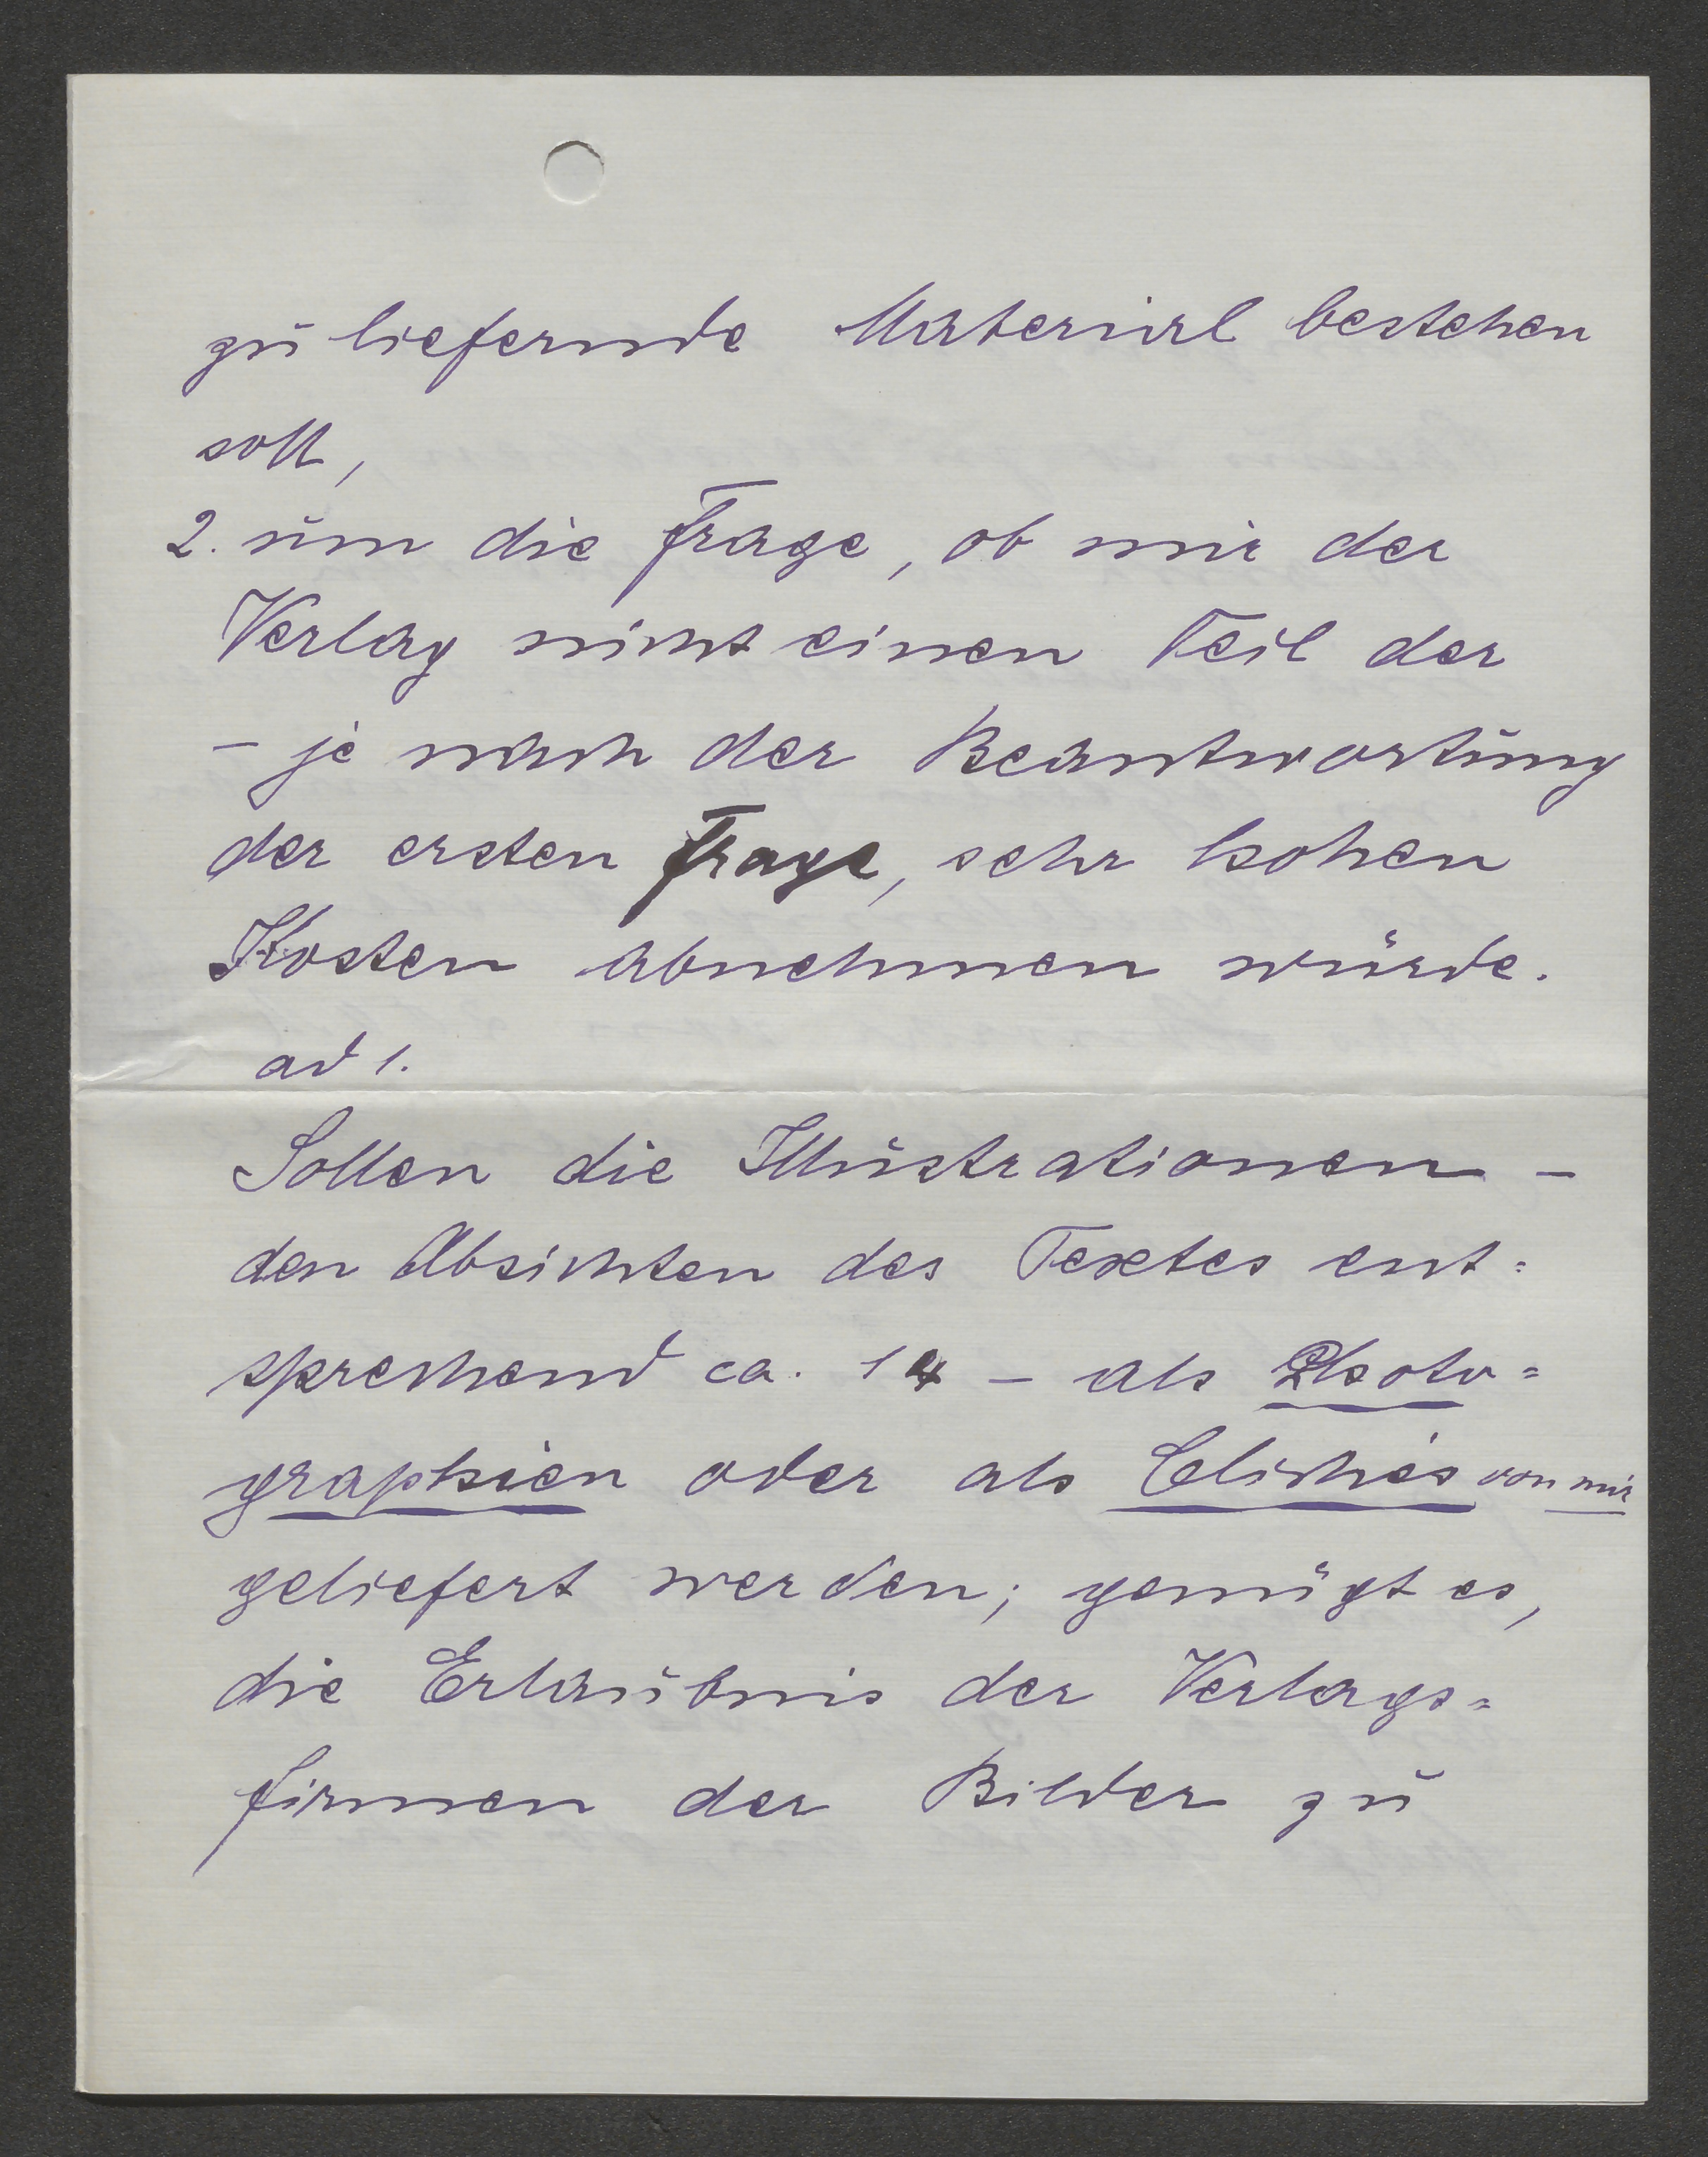 zu liefernde Material bestehen
soll,
2. um die Frage, ob mir der
Verlag nicht einen Teil der
– je nach der Beantwortung
der ersten Frage, sehr hohen
Kosten abnehmen würde.
ad 1.
Sollen die Illustrationen –
den Absichten des Textes ent=
sprechend ca. 14 – als Photo=
graphien oder als Clichés von mir
geliefert werden; genügt es,
die Erlaubnis der Verlags=
firmen der Bilder zu